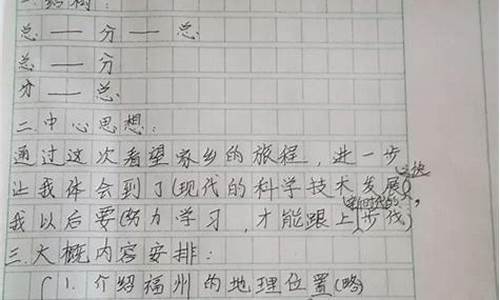 一.结构:
总——分——总
总——分
分——总
二.中心思想:
通过这次看望家乡的旅程,进一步
让我体会到了(现代的科学技术发展之快,
我以后要(努力学习,才能跟上新时代的步伐)
三.大概内容安排:
(1.介绍福州的地理位置(略)